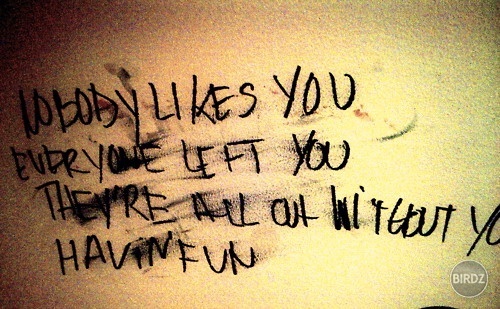 NOBODY LIKES YOU
EVERYONE LEFT YOU
THEY'RE ALL OUT WITHOUT YO
HAVIN FUN
BIRDZ